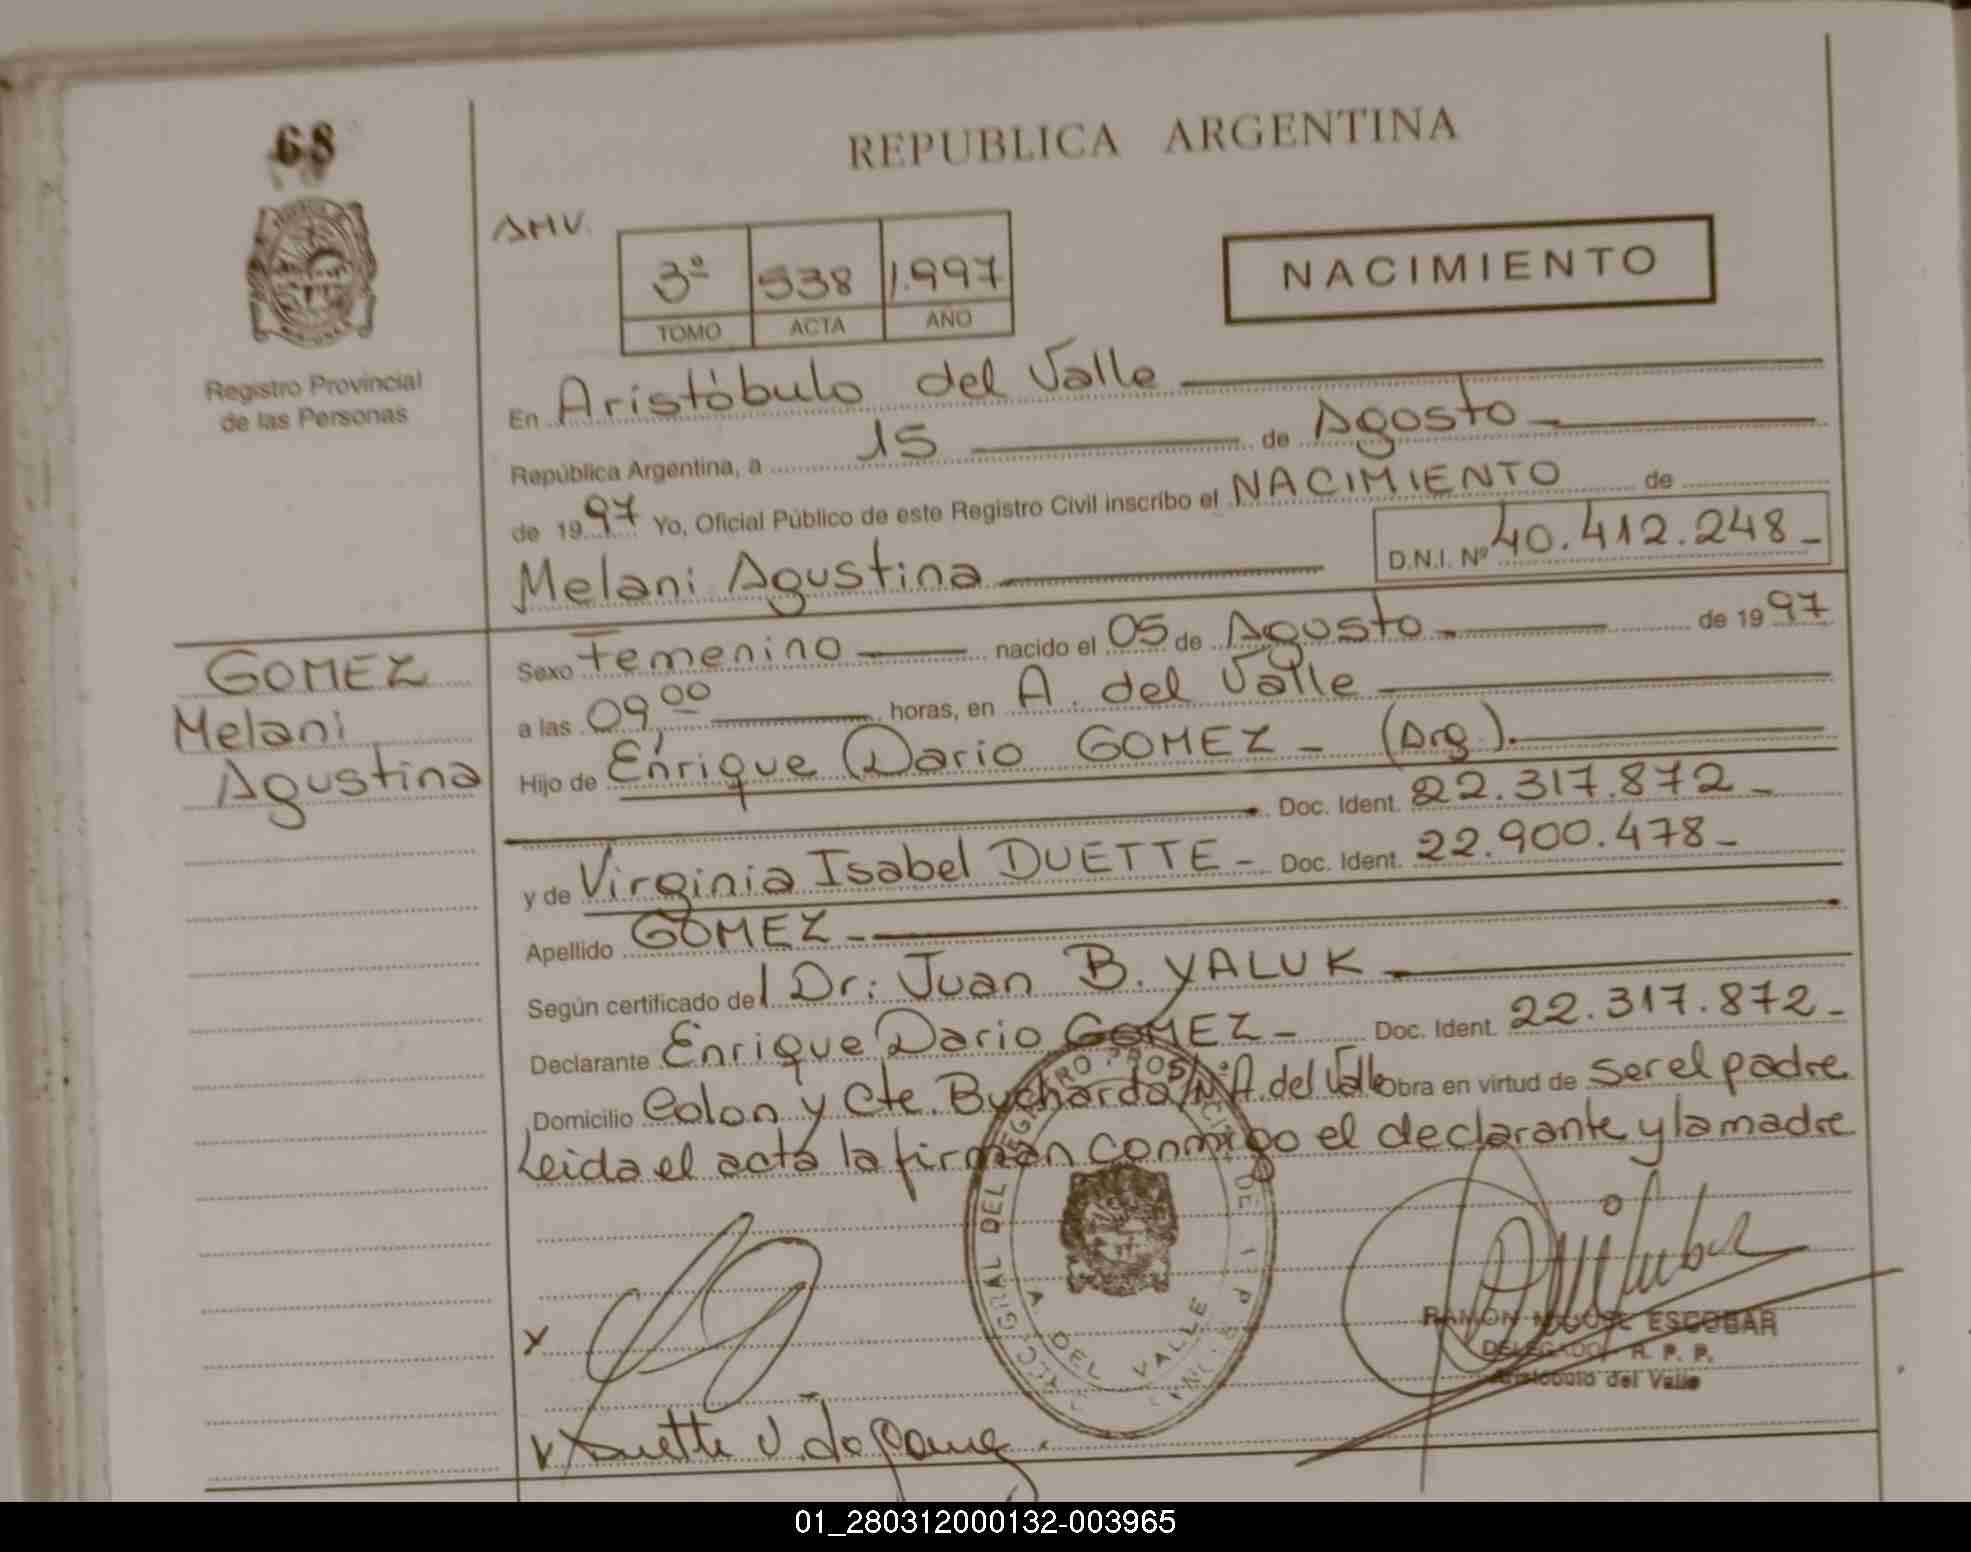 68
REPUBLICA ARGENTINA
AMV.
3º 538 1.997
TOMO ACTA AÑO
NACIMIENTO
Registro Provincial
de las Personas
En Aristóbulo del Valle
República Argentina, a 15 de Agosto
de 1997 Yo, Oficial Público de este Registro Civil inscribo el NACIMIENTO de
Melani Agustina D.N.I. Nº 40.412.248
GOMEZ
Melani
Agustina
Sexo Femenino nacido el 05 de Agosto de 1997
a las 09,00 horas, en A. del Valle
Hijo de Enrique Dario GOMEZ - (Arg).
Doc. Ident. 22.317.872
y de Virginia Isabel DUETTE - Doc. Ident. 22.900.478
Apellido GOMEZ
Según certificado del Dr: Juan B. YALUK
Declarante Enrique Dario GOMEZ - Doc. Ident. 22.317.872
Domicilio Colon y Cte. Buchardo, Nº A. del Valle obra en virtud de ser el padre
Leida el acta la firman conmigo el declarante y la madre
A. DEL VALLE
RAMON MIGUEL ESCOBAR
DELEGADO R. P. P.
Aristóbulo del Valle
Duette V. de
01_280312000132-003965